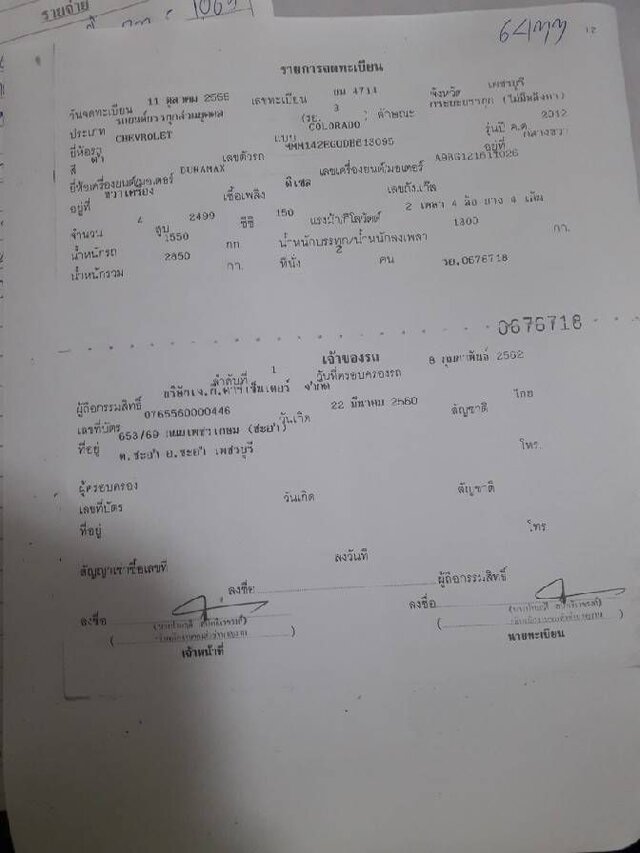 รายจ่าย
12
รายการจดทะเบียน
วันจดทะเบียน 11 ตุลาคม 2555 เลขทะเบียน ยม 4714 จังหวัด เพชรบุรี
ประเภท รถยนต์บรรทุกส่วนบุคคล (รย. 3 ) ลักษณะ กระบะบรรทุก (ไม่มีหลังคา)
ยี่ห้อรถ CHEVROLET แบบ COLORADO รุ่นปี ค.ศ. 2012
สี ดำ เลขตัวรถ อยู่ที่ กลางขวา
ยี่ห้อเครื่องยนต์/มอเตอร์ DURAMAX เลขเครื่องยนต์/มอเตอร์
อยู่ที่ ขวาเครื่อง เชื้อเพลิง ดีเซล เลขถังแก๊ส
จำนวน 4 สูบ 2499 ซีซี 150 แรงม้า/กิโลวัตต์ 2 เพลา 4 ล้อ ยาง 4 เส้น
น้ำหนักรถ 1550 กก. น้ำหนักบรรทุก/น้ำหนักลงเพลา 1300 กก.
น้ำหนักรวม 2850 กก. ที่นั่ง 2 คน รย.0676718
0676718
เจ้าของรถ
ลำดับที่ 1 วันที่ครอบครองรถ 8 กุมภาพันธ์ 2562
ผู้ถือกรรมสิทธิ์ บริษัท จำกัด
เลขที่บัตร 0765560000446 วันเกิด 22 มีนาคม 2560 สัญชาติ ไทย
ที่อยู่ 653/69 ถนนเพชรเกษม (ชะอำ) โทร.
ต.ชะอำ อ.ชะอำ เพชรบุรี
ผู้ครอบครอง
เลขที่บัตร วันเกิด สัญชาติ
ที่อยู่ โทร.
สัญญาเช่าซื้อเลขที่ ลงวันที่
ลงชื่อ ผู้ถือกรรมสิทธิ์
ลงชื่อ ลงชื่อ
เจ้าหน้าที่ นายทะเบียน